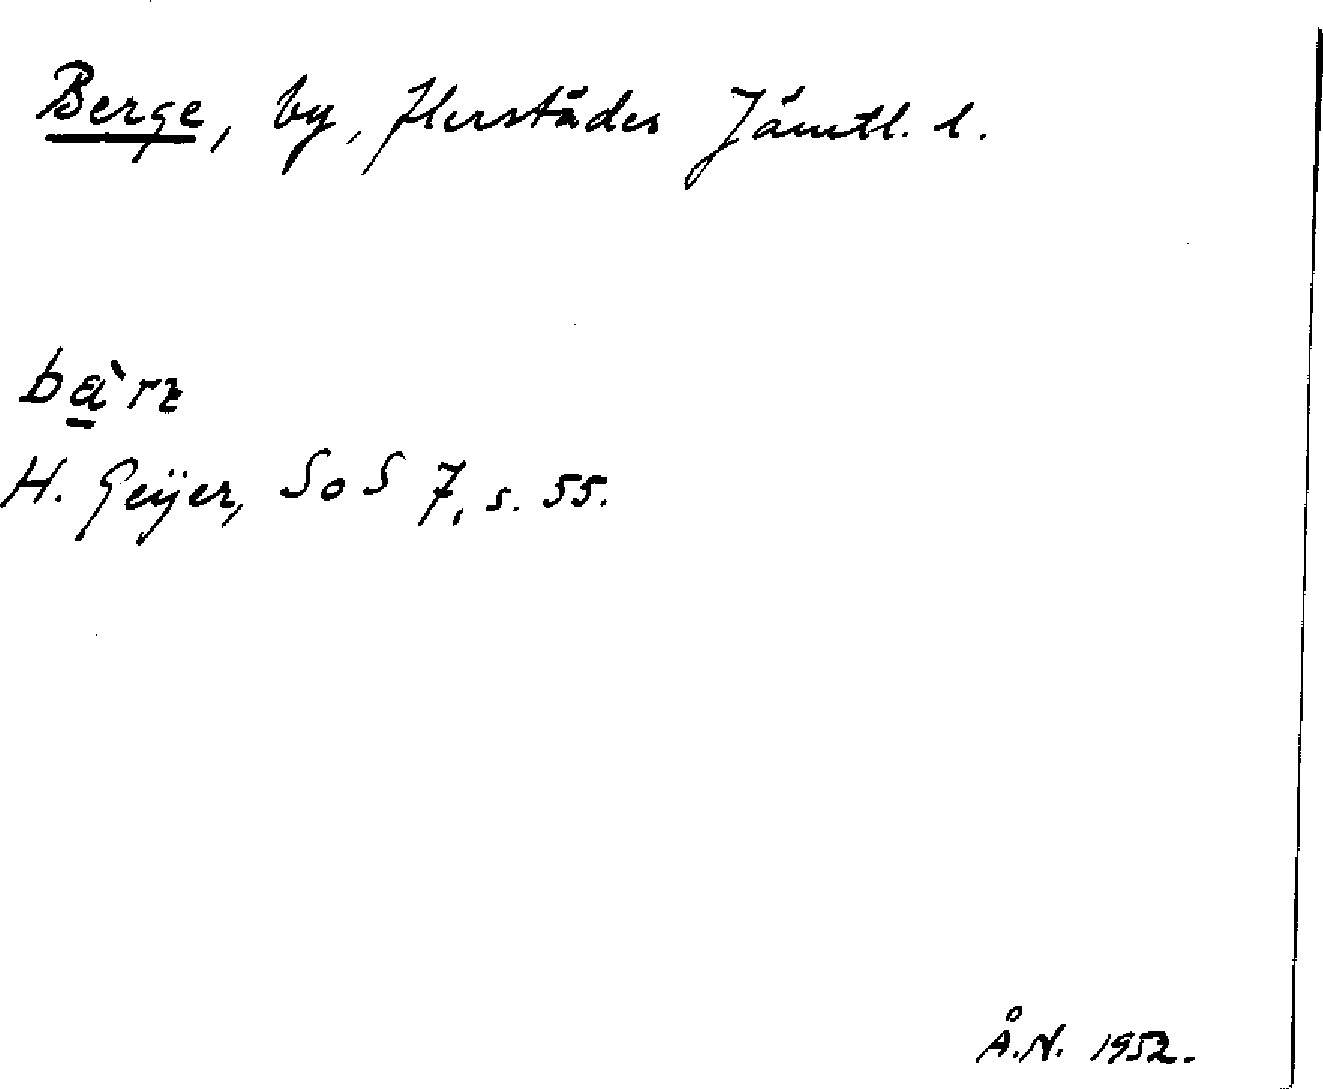 Berge, by, Herstäder Jämtl. l.
H. Geijer, SoS 7, s. 55.
Å.N. 1952.